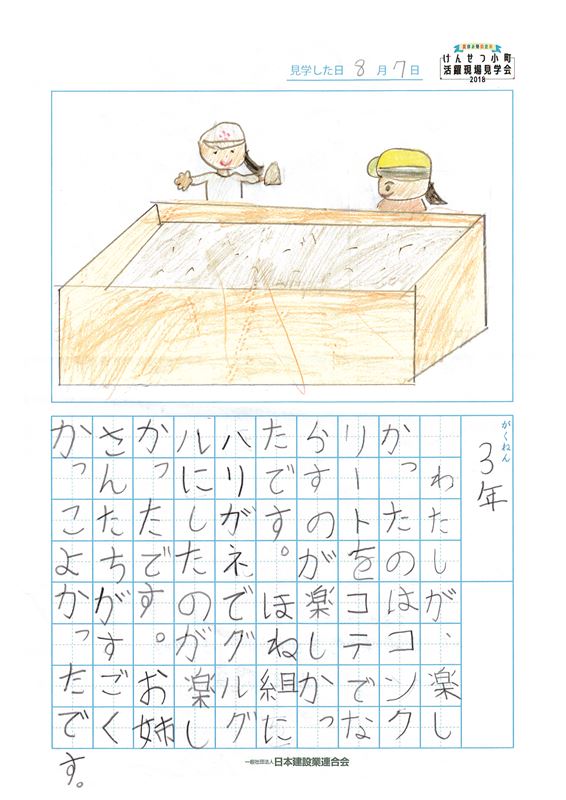 見学した日 8月7日
けんせつ小町
活躍現場見学会
2018
がくねん
3年
わたしが、楽し
かったのはコンク
リートをコテでな
らすのが楽しかっ
たです。ほね組に
ハリガネでグルグ
ルにしたのが楽し
かったです。お姉
さんたちがすごく
かっこよかったです。
一般社団法人 日本建設業連合会